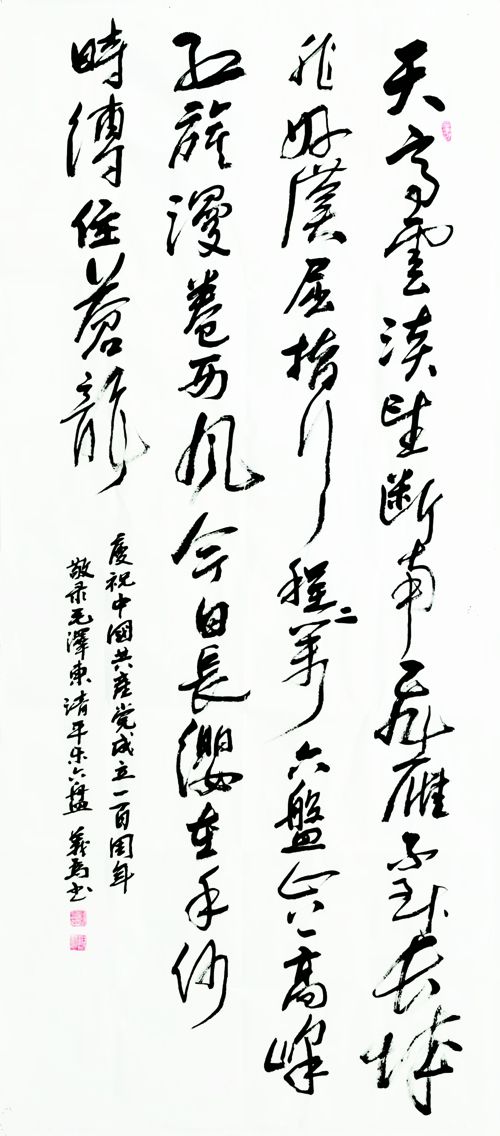 天高雲淡望斷南飛雁不到長城
非好漢屈指行程二萬六盤山上高峰
紅旗漫卷西風今日長纓在手何
時縛住蒼龍
慶祝中國共產党成立一百周年
敬录毛澤東清平乐六盤 義书